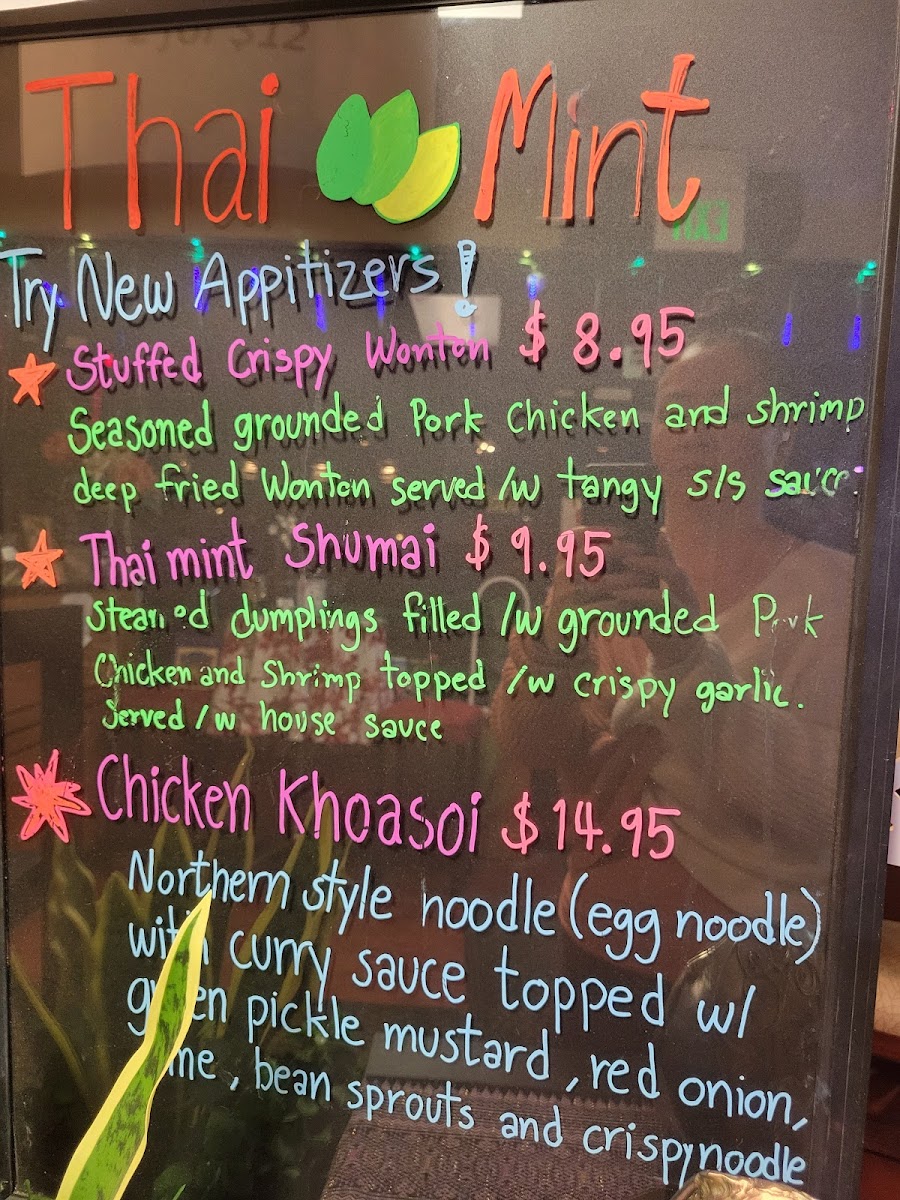 Thai Mint
Try New Appitizers!
Stuffed Crispy Wonton $ 8.95
Seasoned grounded Pork Chicken and shrimp
deep fried Wonton served /w tangy s/s sauce.
Thai mint Shumai $ 9.95
steamed dumplings filled /w grounded Pork
Chicken and Shrimp topped /w crispy garlic.
Served /w house sauce
Chicken Khoasoi $ 14.95
Northern style noodle (egg noodle)
with curry sauce topped w/
green pickle mustard, red onion,
, bean sprouts and crispy noodle
EXIT